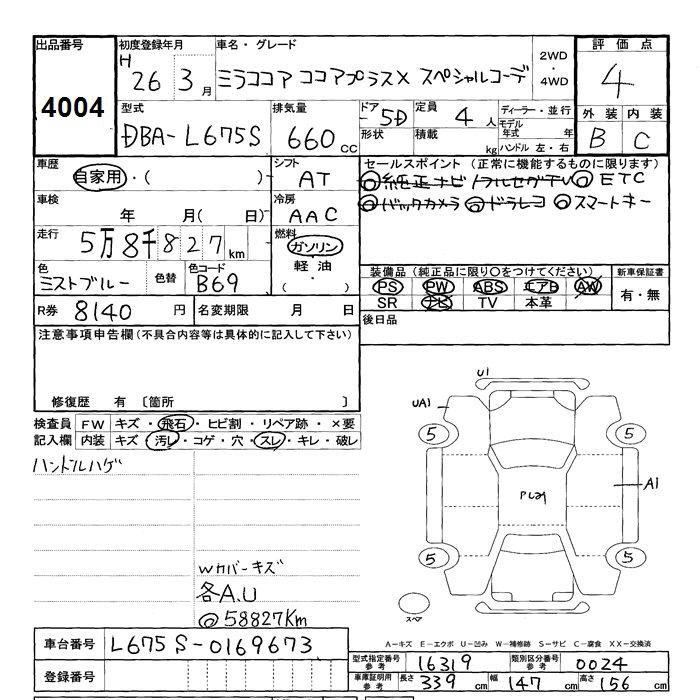 出品番号 4004
初度登録年月 H 26 3 月
車名・グレード
ミラココア ココアプラスX スペシャルコーデ
2WD・4WD
評価点 4
外装 内装
B C
型式 DBA-L675S
排気量 660 cc
ドア 5D
形状
定員 4 人
積載 kg
ディーラー・並行
モデル年式 年
ハンドル 左・右
車歴 自家用・( )
シフト AT
車検 年 月( 日)
冷房 AAC
走行 5万8千827km
燃料 ガソリン・軽油・( )
色 ミストブルー
色替
色コード B69
セールスポイント(正常に機能するものに限ります)
◎純正ナビ フルセグTV ◎ETC
◎バックカメラ ◎ドラレコ ◎スマートキー
装備品(純正品に限り○をつけてください)
PS PW ABS エアB AW
SR ナビ TV 本革
新車保証書 有・無
R券 8140 円
名変期限 月 日
後日品
注意事項申告欄(不具合内容等は具体的に記入して下さい)
修復歴 有 〔箇所 〕
検査員記入欄
FW キズ・飛石・ヒビ割・リペア跡・×要
内装 キズ・汚レ・コゲ・穴・スレ・キレ・破レ
ハンドルハゲ
Wカバーキズ
各A.U
@58827Km
U1
UA1
5 5
A1
5 5
スペア
A-キズ E-エクボ U-凹み W-補修跡 S-サビ C-腐食 XX-交換済
車台番号 L675S-0169673
登録番号
型式指定番号 参考 16319
類別区分番号 参考 0024
車庫証明用 参考 長さ 339 cm 幅 147 cm 高さ 156 cm